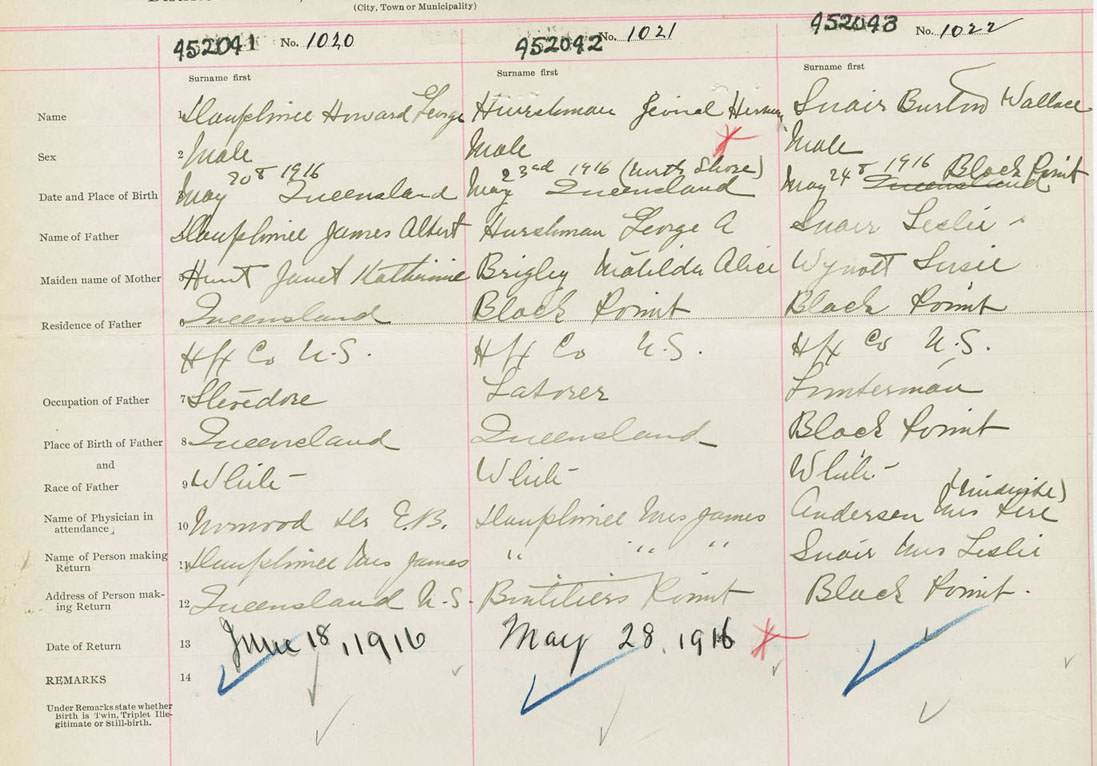 (City, Town or Municipality)
452041 No. 1020
452042 No. 1021
452043 No. 1022
Surname first Surname first Surname first
Name 1 Dauphinee Howard George Hurshman Herman Snair Burton Wallace
Sex 2 Male Male Male
Date and Place of Birth 3 May 20th 1916 Queensland May 23rd 1916 (North Shore) Queensland May 24th 1916 Queensland Black Point
Name of Father Dauphinee James Albert Hurshman George A Snair Leslie
Maiden name of Mother 5 Hunt Janet Katherine Brigley Matilda Alice Wynott Susie
Residence of Father 6 Queensland Black Point Black Point
Hfx Co N.S. Hfx Co N.S. Hfx Co N.S.
Occupation of Father 7 Stevedore Laborer Lumberman
Place of Birth of Father 8 Queensland Queensland Black Point
and
Race of Father 9 White White White
Name of Physician in
attendance 10 Norwood Dr E.B. Dauphinee Mrs James Andersen Mrs (Midwife)
Name of Person making
Return 11 Dauphinee Mrs James " " " Snair Mrs Leslie
Address of Person mak-
ing Return 12 Queensland N.S. Boutiliers Point Black Point.
Date of Return 13 June 18, 1916 May 28, 1916
REMARKS 14
Under Remarks state whether
Birth is Twin, Triplet Ille-
gitimate or Still-birth.